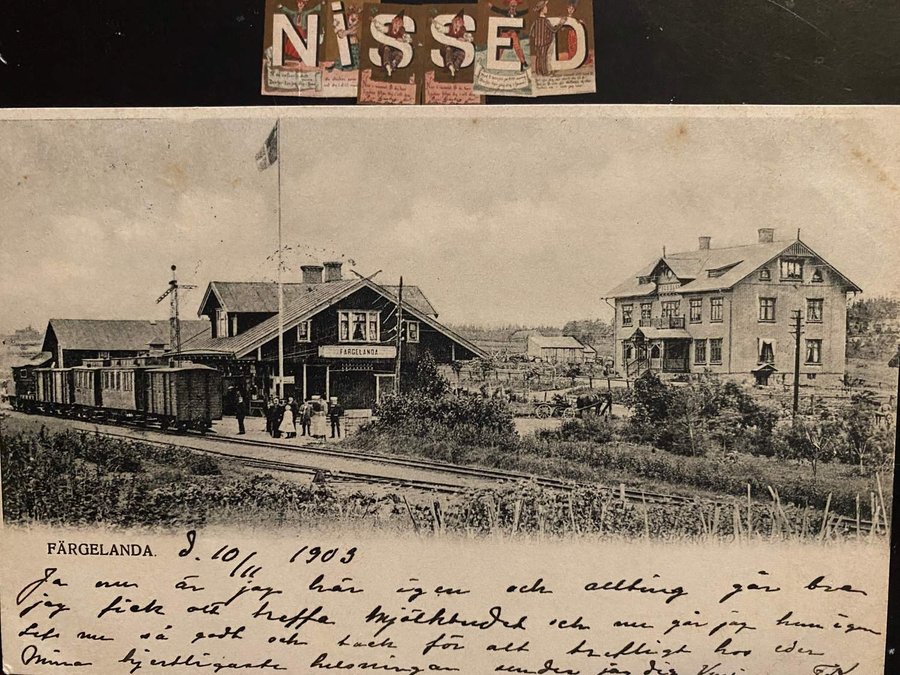 NISSED
FÄRGELANDA
FÄRGELANDA. d. 10/11 1903
Ja nu är jag här igen och allting går bra
jag fick att träffa mjölkbudet och nu går jag hem igen
så godt och tack för allt trefligt hos eder
Mina hjertligaste helsningar sender jag dig